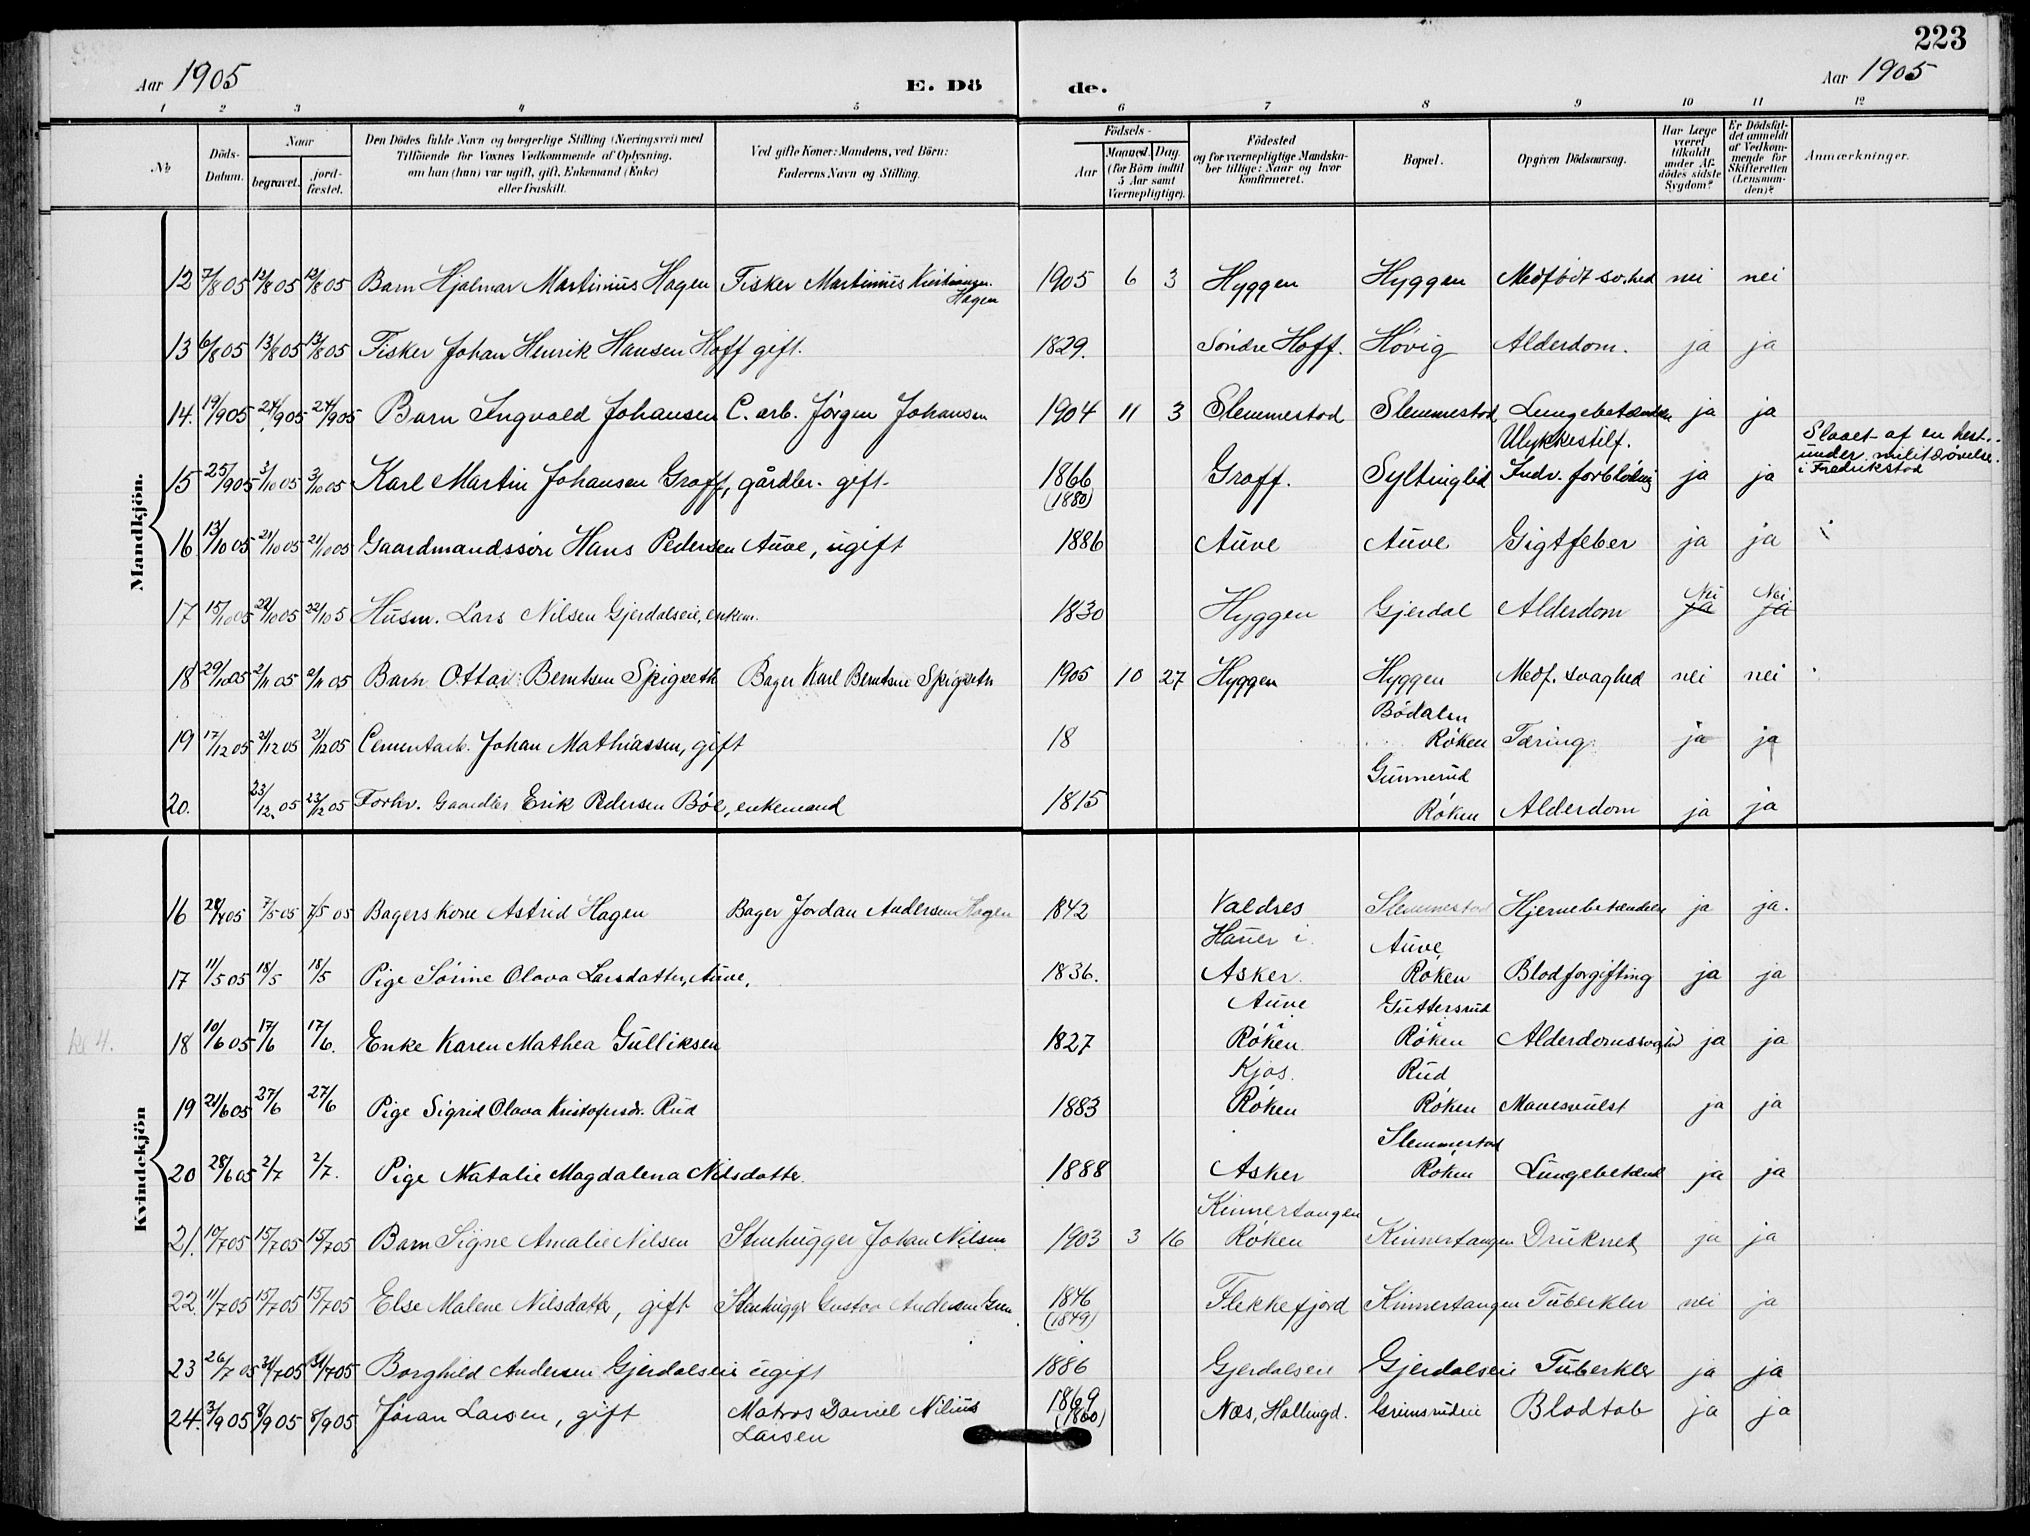 223
Aar 1905
E. Dö
de.
Aar 1905
1 2 3 4 5 6 7 8 9 10 11 12
No
Döds-Datum.
Naar
begravet.
jord-fæstet.
Den Dödes fulde Navn og borgerlige Stilling (Næringsvei) med
Tilföiende for Voxnes Vedkommende af Oplysning,
om han (hun) var ugift, gift, Enkemand (Enke)
eller fraskilt.
Ved gifte Koner: Mandens, ved Börn:
Faderens Navn og Stilling.
Födsels-
Aar
Maaned.
Dag.
(for Börn indtil
5 Aar samt
Værnepligtige).
Födested
og for værnepligtige Mandska-
ber tillige: Naar og hvor
konfirmeret.
Bopæl.
Opgiven Dödsaarsag.
Har Læge
været
tilkaldt
under Af-
dödes sidste
Sygdom?
Er Dödsfal-
det anmeldt
af Vedkom-
mende for
Skifteretten
(Lensman-
den)?
Anmærkninger.
Mandkjön.
12 7/8 05 12/8 05 12/8 05 Barn Hjalmar Martinius Hagen Fisker Martinius Kristiansen Hagen 1905 6 3 Hyggen Hyggen Medfödt sv.hed nei nei
13 6/8 05 13/8 05 13/8 05 Fisker Johan Henrik Hansen Hoff gift. 1829. Söndre Hoff. Hövig Alderdom. ja ja
14. 19/9 05 24/9 05 24/9 05 Barn Ingvald Johansen C. arb. Jörgen Johansen 1904 11 3 Slemmestad Slemmestad Lungebetændelse ja ja
15 25/9 05 3/10 05 3/10 05 Karl Martin Johansen Graff, gårdbr. gift. 1866 (1880) Graff. Syltinglid Ulykkestilf. Indv. forblödnig ja ja Slaaet af en hest under militærövelse i Fredrikstad
16 13/10 05 21/10 05 21/10 05 Gaardmandssön Hans Pedersen Auve, ugift 1886 Auve Auve Gigtfeber ja ja
17 15/10 05 22/10 05 22/10 5 Husm. Lars Nilsen Gjerdalseie, enkem. 1830 Hyggen Gjerdal Alderdom Nei ja Nei. ja
18 29/10 05 2/11 05 2/11 05 Barn Ottar Berntsen Spigseth Bager Karl Berntsen Spigseth 1905 10 27 Hyggen Hyggen Medf. svaghed nei nei
19 17/12 05 21/12 05 21/12 05 Cementarb. Johan Mathiassen, gift 18 Bödalen Röken Tæring ja ja
20. 23/12 05 23/12 05 Forhv. Gaardbr Erik Pedersen Böe, enkemand 1815 Gunnerud Röken Alderdom ja ja
Kvindekjön
16 28/4 05 7/5 05 7/5 05 Bagers kone Astrid Hagen Bager Jordan Andersen Hagen 1842 Valdres Slemmestad Hjernebetændelse ja ja.
17 11/5 05 18/5 18/5 Pige Sörine Olava Larsdatter, Auve. 1836. Hauer i Asker. Auve, Röken Blodforgiftning ja ja
kl 4.
18 10/6 05 17/6 17/6. Enke Karen Mathea Gulliksen 1827 Auve Röken Guttersrud Röken Alderdomssvaghed ja ja
19 21/6 05 27/6 27/6 Pige Sigrid Olava Kristofersdr. Rud 1883 Kjos. Röken Rud Röken Mavesvulst ja ja
20 28/6 05 2/7 2/7. Pige Natalie Magdalena Nilsdatter. 1888 Asker Slemmestad Röken Lungebetænd ja ja
21. 10/7 05 15/7 05 15/7 05 Barn Signe Amalie Nilsen Stenhugger Johan Nilsen 1903 3 16 Kinnertangen Röken Kinnertangen Druknet ja ja
22. 11/7 05 15/7 05 15/7 05 Else Malene Nilsdattr, gift Stenhuggr Gustav Andersen 1846 (1849) Flekkefjord Kinnertangen Tuberkler nei ja
23 26/7 05 31/7 05 31/7 05 Borghild Andersen Gjerdalseie ugift 1886 Gjerdalseie Gjerdalseie Tuberkler ja ja
24. 3/9 05 8/9 05 8/9 05 Jöran Larsen, gift Matros Daniel Nilius Larsen 1869 (1860) Næs, Hallingd. Grimsrudeie Blodtab ja ja